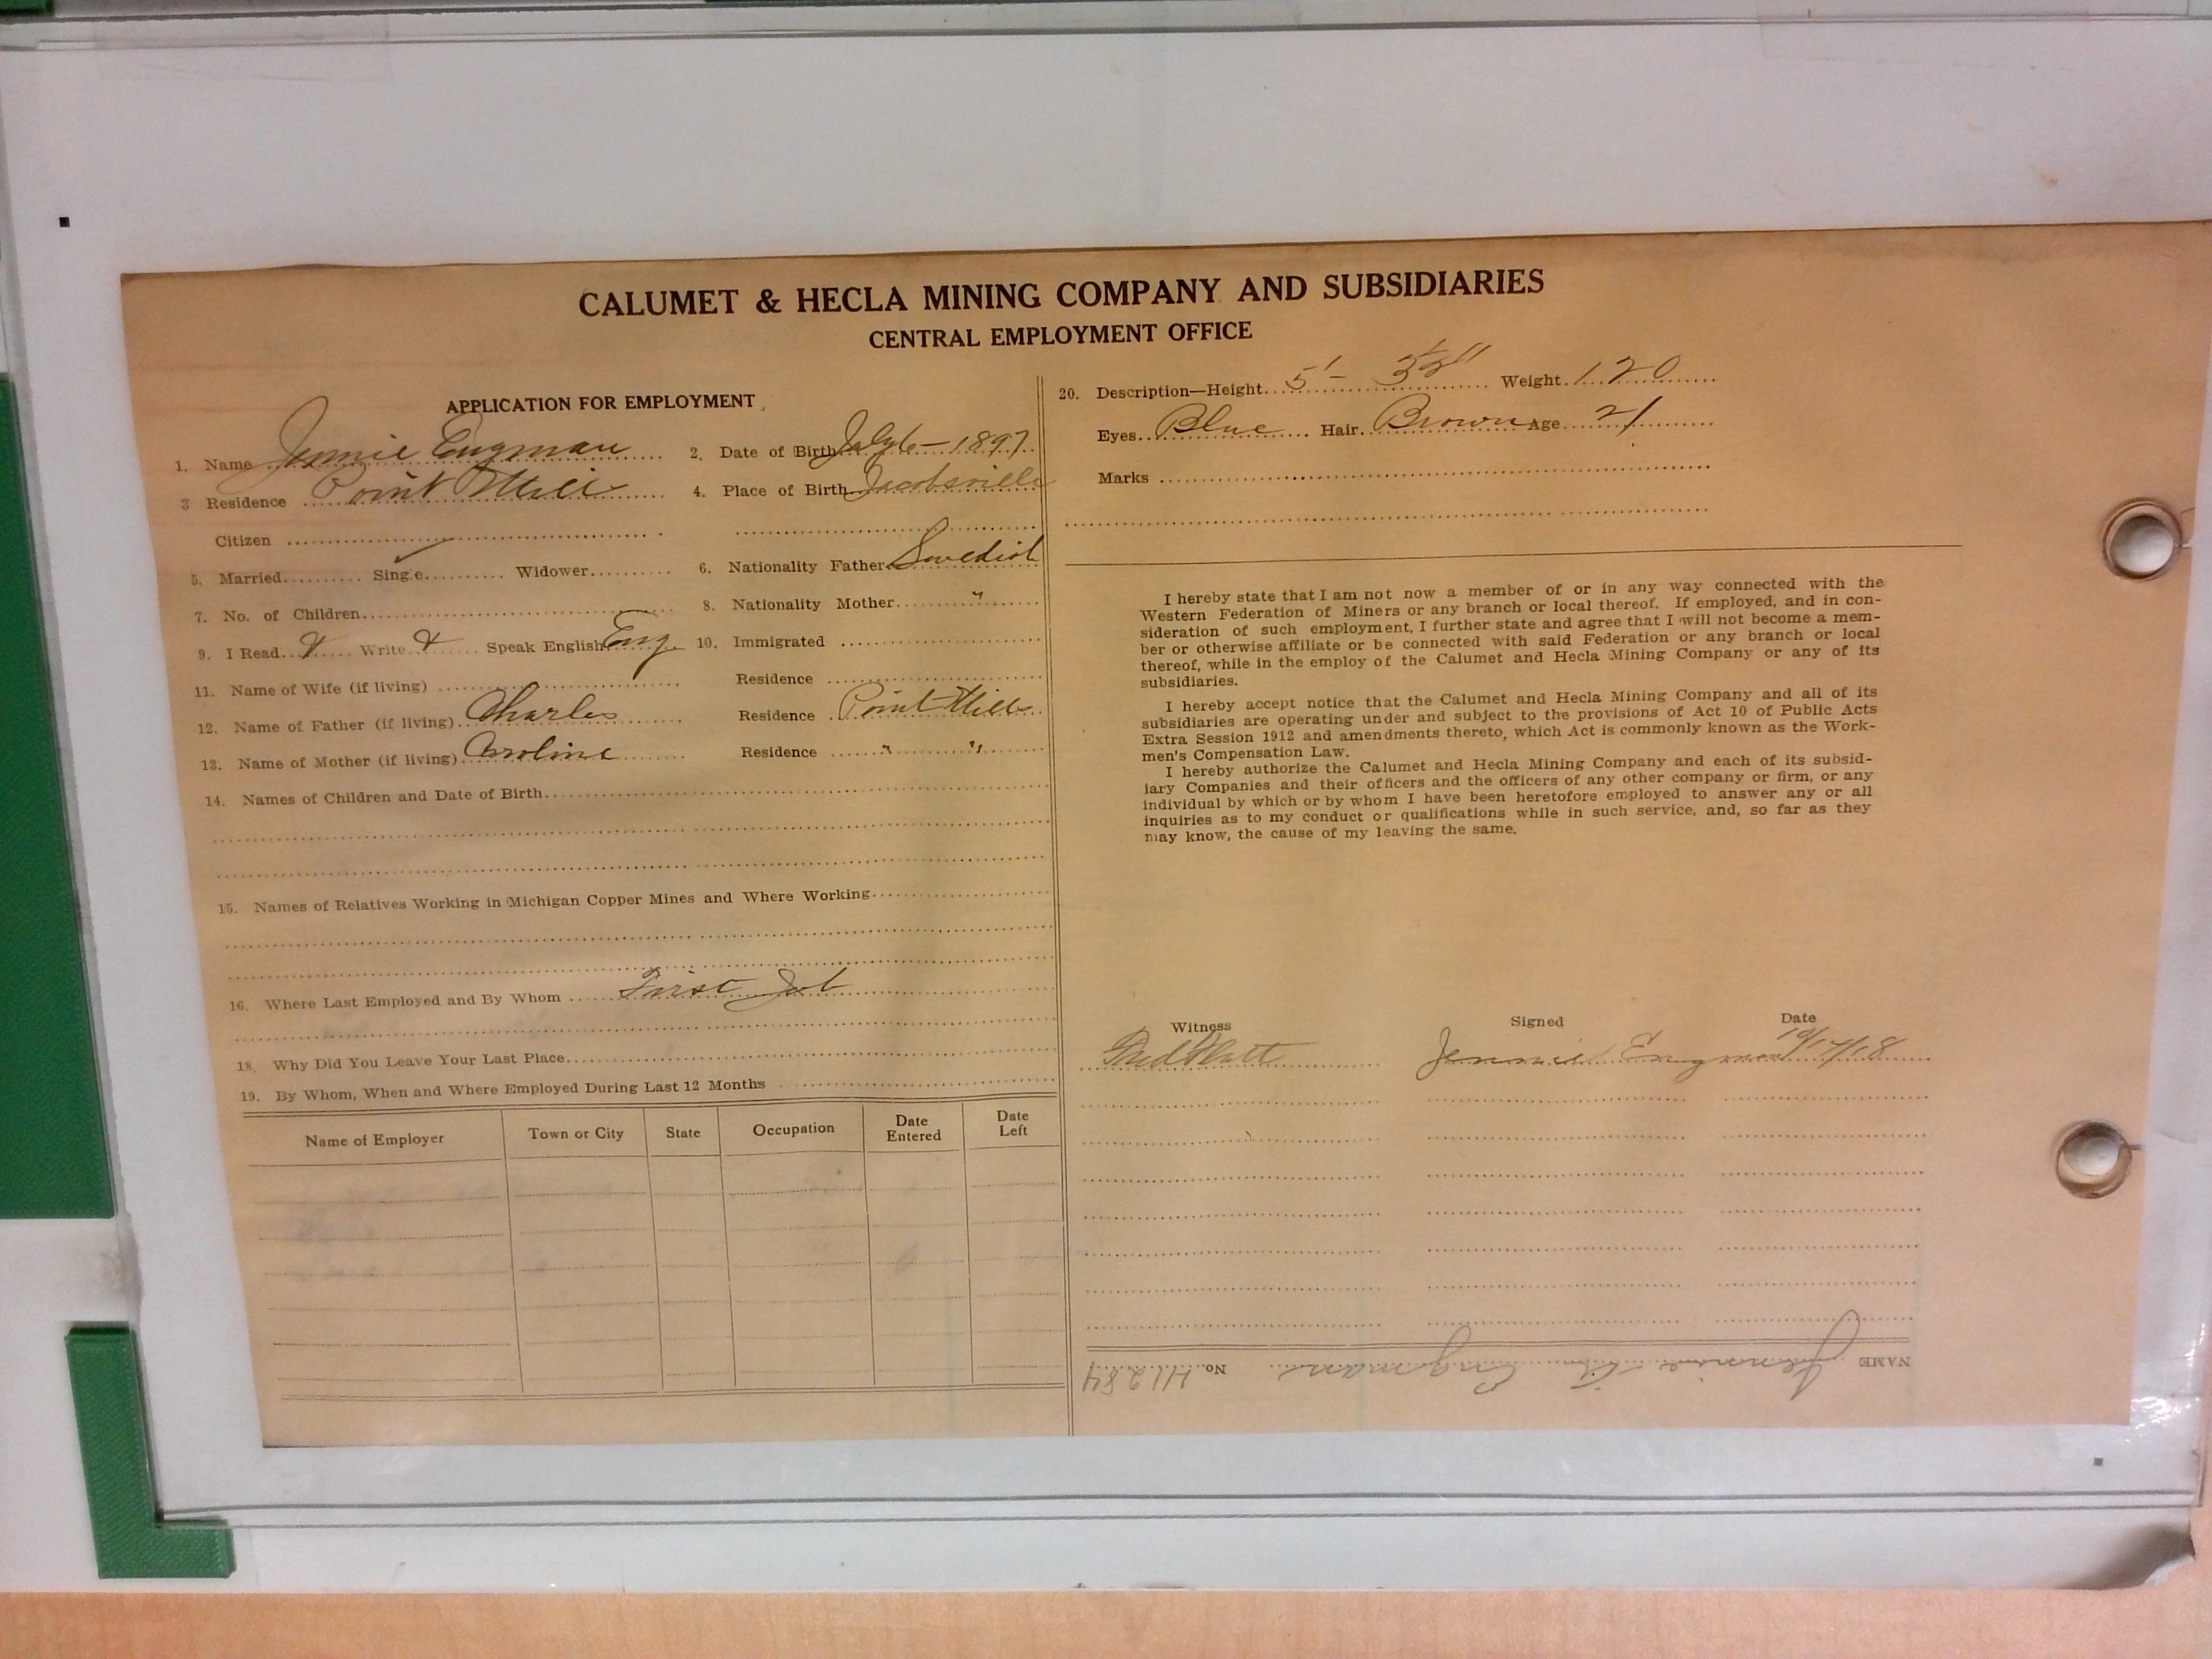 CALUMET & HECLA MINING COMPANY AND SUBSIDIARIES
CENTRAL EMPLOYMENT OFFICE
APPLICATION FOR EMPLOYMENT
1. Name Jennie Engman
2. Date of Birth July 6 - 1897
3 Residence Point Mills
4. Place of Birth Jacobsville
Citizen
5. Married Single ✓ Widower
6. Nationality Father Swedish
7. No. of Children
8. Nationality Mother "
9. I Read Write Speak English Eng.
10. Immigrated
11. Name of Wife (if living)
Residence
12. Name of Father (if living) Charles
Residence Point Mills
13. Name of Mother (if living) Caroline
Residence " "
14. Names of Children and Date of Birth
15. Names of Relatives Working in Michigan Copper Mines and Where Working
16. Where Last Employed and By Whom First Job
18. Why Did You Leave Your Last Place
19. By Whom, When and Where Employed During Last 12 Months
Name of Employer Town or City State Occupation Date Entered Date Left
20. Description—Height 5' - 3½" Weight 120
Eyes Blue Hair Brown Age 21
Marks
I hereby state that I am not now a member of or in any way connected with the
Western Federation of Miners or any branch or local thereof. If employed, and in con-
sideration of such employment, I further state and agree that I will not become a mem-
ber or otherwise affiliate or be connected with said Federation or any branch or local
thereof, while in the employ of the Calumet and Hecla Mining Company or any of its
subsidiaries.
I hereby accept notice that the Calumet and Hecla Mining Company and all of its
subsidiaries are operating under and subject to the provisions of Act 10 of Public Acts
Extra Session 1912 and amendments thereto, which Act is commonly known as the Work-
men's Compensation Law.
I hereby authorize the Calumet and Hecla Mining Company and each of its subsid-
iary Companies and their officers and the officers of any other company or firm, or any
individual by which or by whom I have been heretofore employed to answer any or all
inquiries as to my conduct or qualifications while in such service, and, so far as they
may know, the cause of my leaving the same.
Witness Signed Date
Jennie Engman 10/17/18
NAME Jennie Engman No. H1284